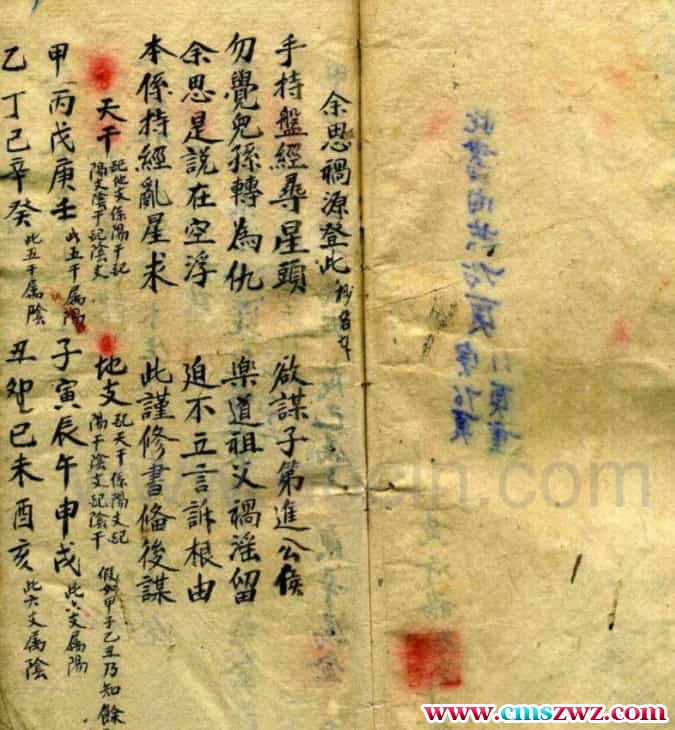 余思禍源登此
手持盤經尋星頭 欲謀子第進公侯
勿覺兒孫轉為仇 樂道祖父禍滛留
余思是說在空浮 迫不立言訴根由
本係持經亂星求 此謹修書俻後謀
天干 配地支係陽干配
陽支陰干配陰支
地支 配天干係陽支配
陽干陰支配陰干
假如甲子乙丑乃知餘
甲丙戊庚壬 此五干属陽 子寅辰午申戌 此六支属陽
乙丁己辛癸 此五干属陰 丑卯巳未酉亥 此六支属陰
www.cmszwz.com